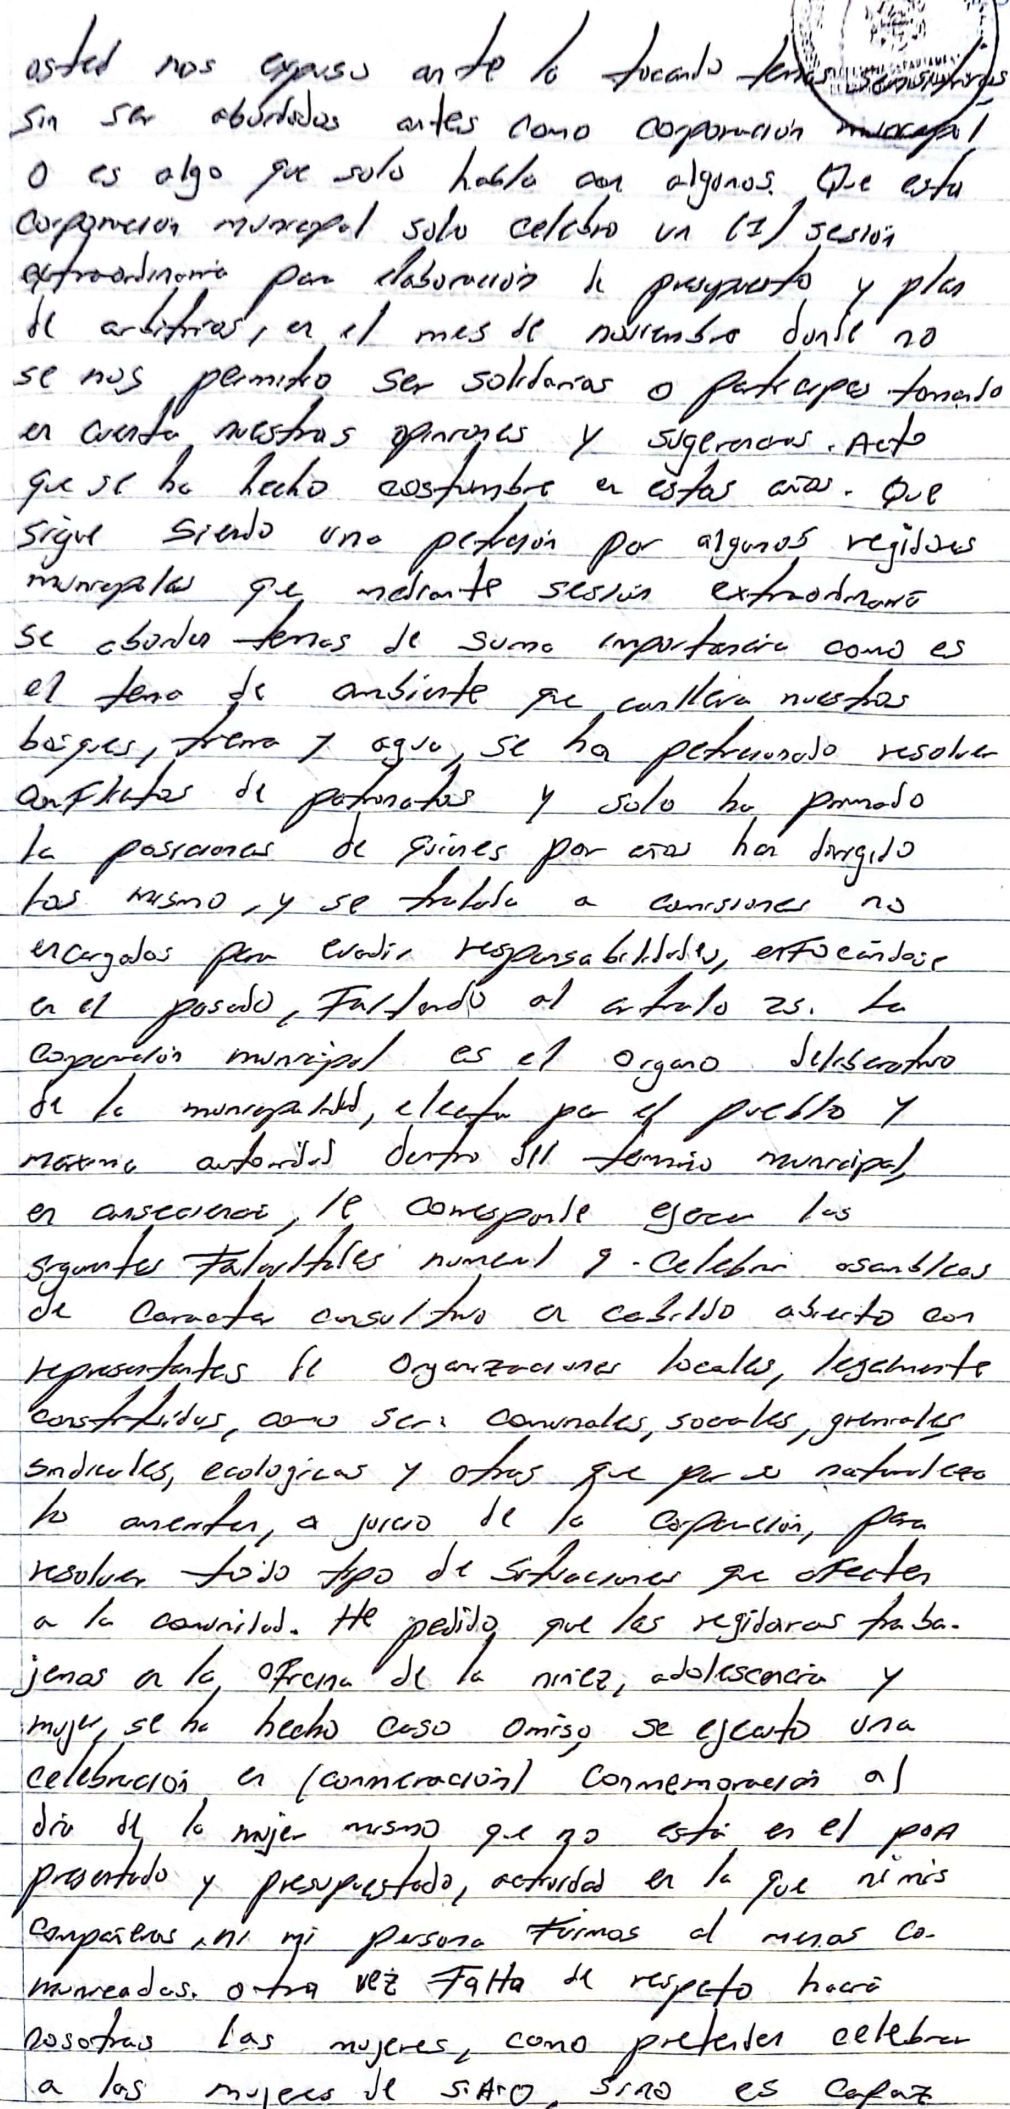 usted nos expuso ante la tocando temas
sin ser abordados antes como corporación municipal
O es algo que solo hablo con algunos. Que esta
corporación municipal solo celebro un (1) sesión
extraordinaria para elaboración de presupuesto y plan
de arbitrios, en el mes de noviembre donde no
se nos permitio ser solidarias o participes tomando
en cuenta nuestras opiniones y sugerencias. Acto
que se ha hecho costumbre en estos años. Que
sigue siendo una petición por algunos regidores
municipales que mediante sesión extraordinaria
se aborden temas de suma importancia como es
el tema de ambiente que conlleva nuestros
bosques, tierra y agua, se ha peticionado resolver
conflictos de patronatos y solo ha primado
la posiciones de quienes por años han dirigido
los mismo, y se traslada a comisiones no
encargados para evadir responsabilidades, enfocándose
en el pasado, Faltando al artículo 25. La
corporación municipal es el organo deliberativo
de la municipalidad, electa por el pueblo y
máxima autoridad dentro del termino municipal,
en consecuencia, le corresponde ejercer las
siguientes Facultades numeral 9. Celebrar asambleas
de caracter consultivo en cabildo abierto con
representantes de organizaciones locales, legalmente
constituidas, como ser: comunales, sociales, gremiales,
sindicales, ecologicas y otras que por su naturaleza
lo ameriten, a juicio de la corporación, para
resolver todo tipo de situaciones que afecten
a la comunidad. He pedido que las regidoras traba-
jemos en la oficina de la niñez, adolescencia y
mujer, se ha hecho caso omiso, se ejecuto una
celebración en (conmeración) conmemoración al
día de la mujer mismo que no está en el POA
presentado y presupuestado, actividad en la que ni mis
compañeras, ni mi persona Fuimos al menos co-
municadas. otra vez Falta de respeto hacia
nosotras las mujeres, como pretenden celebrar
a las mujeres de sino es capaz